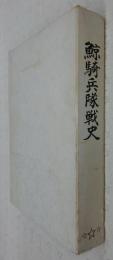 鯨騎兵隊戦史